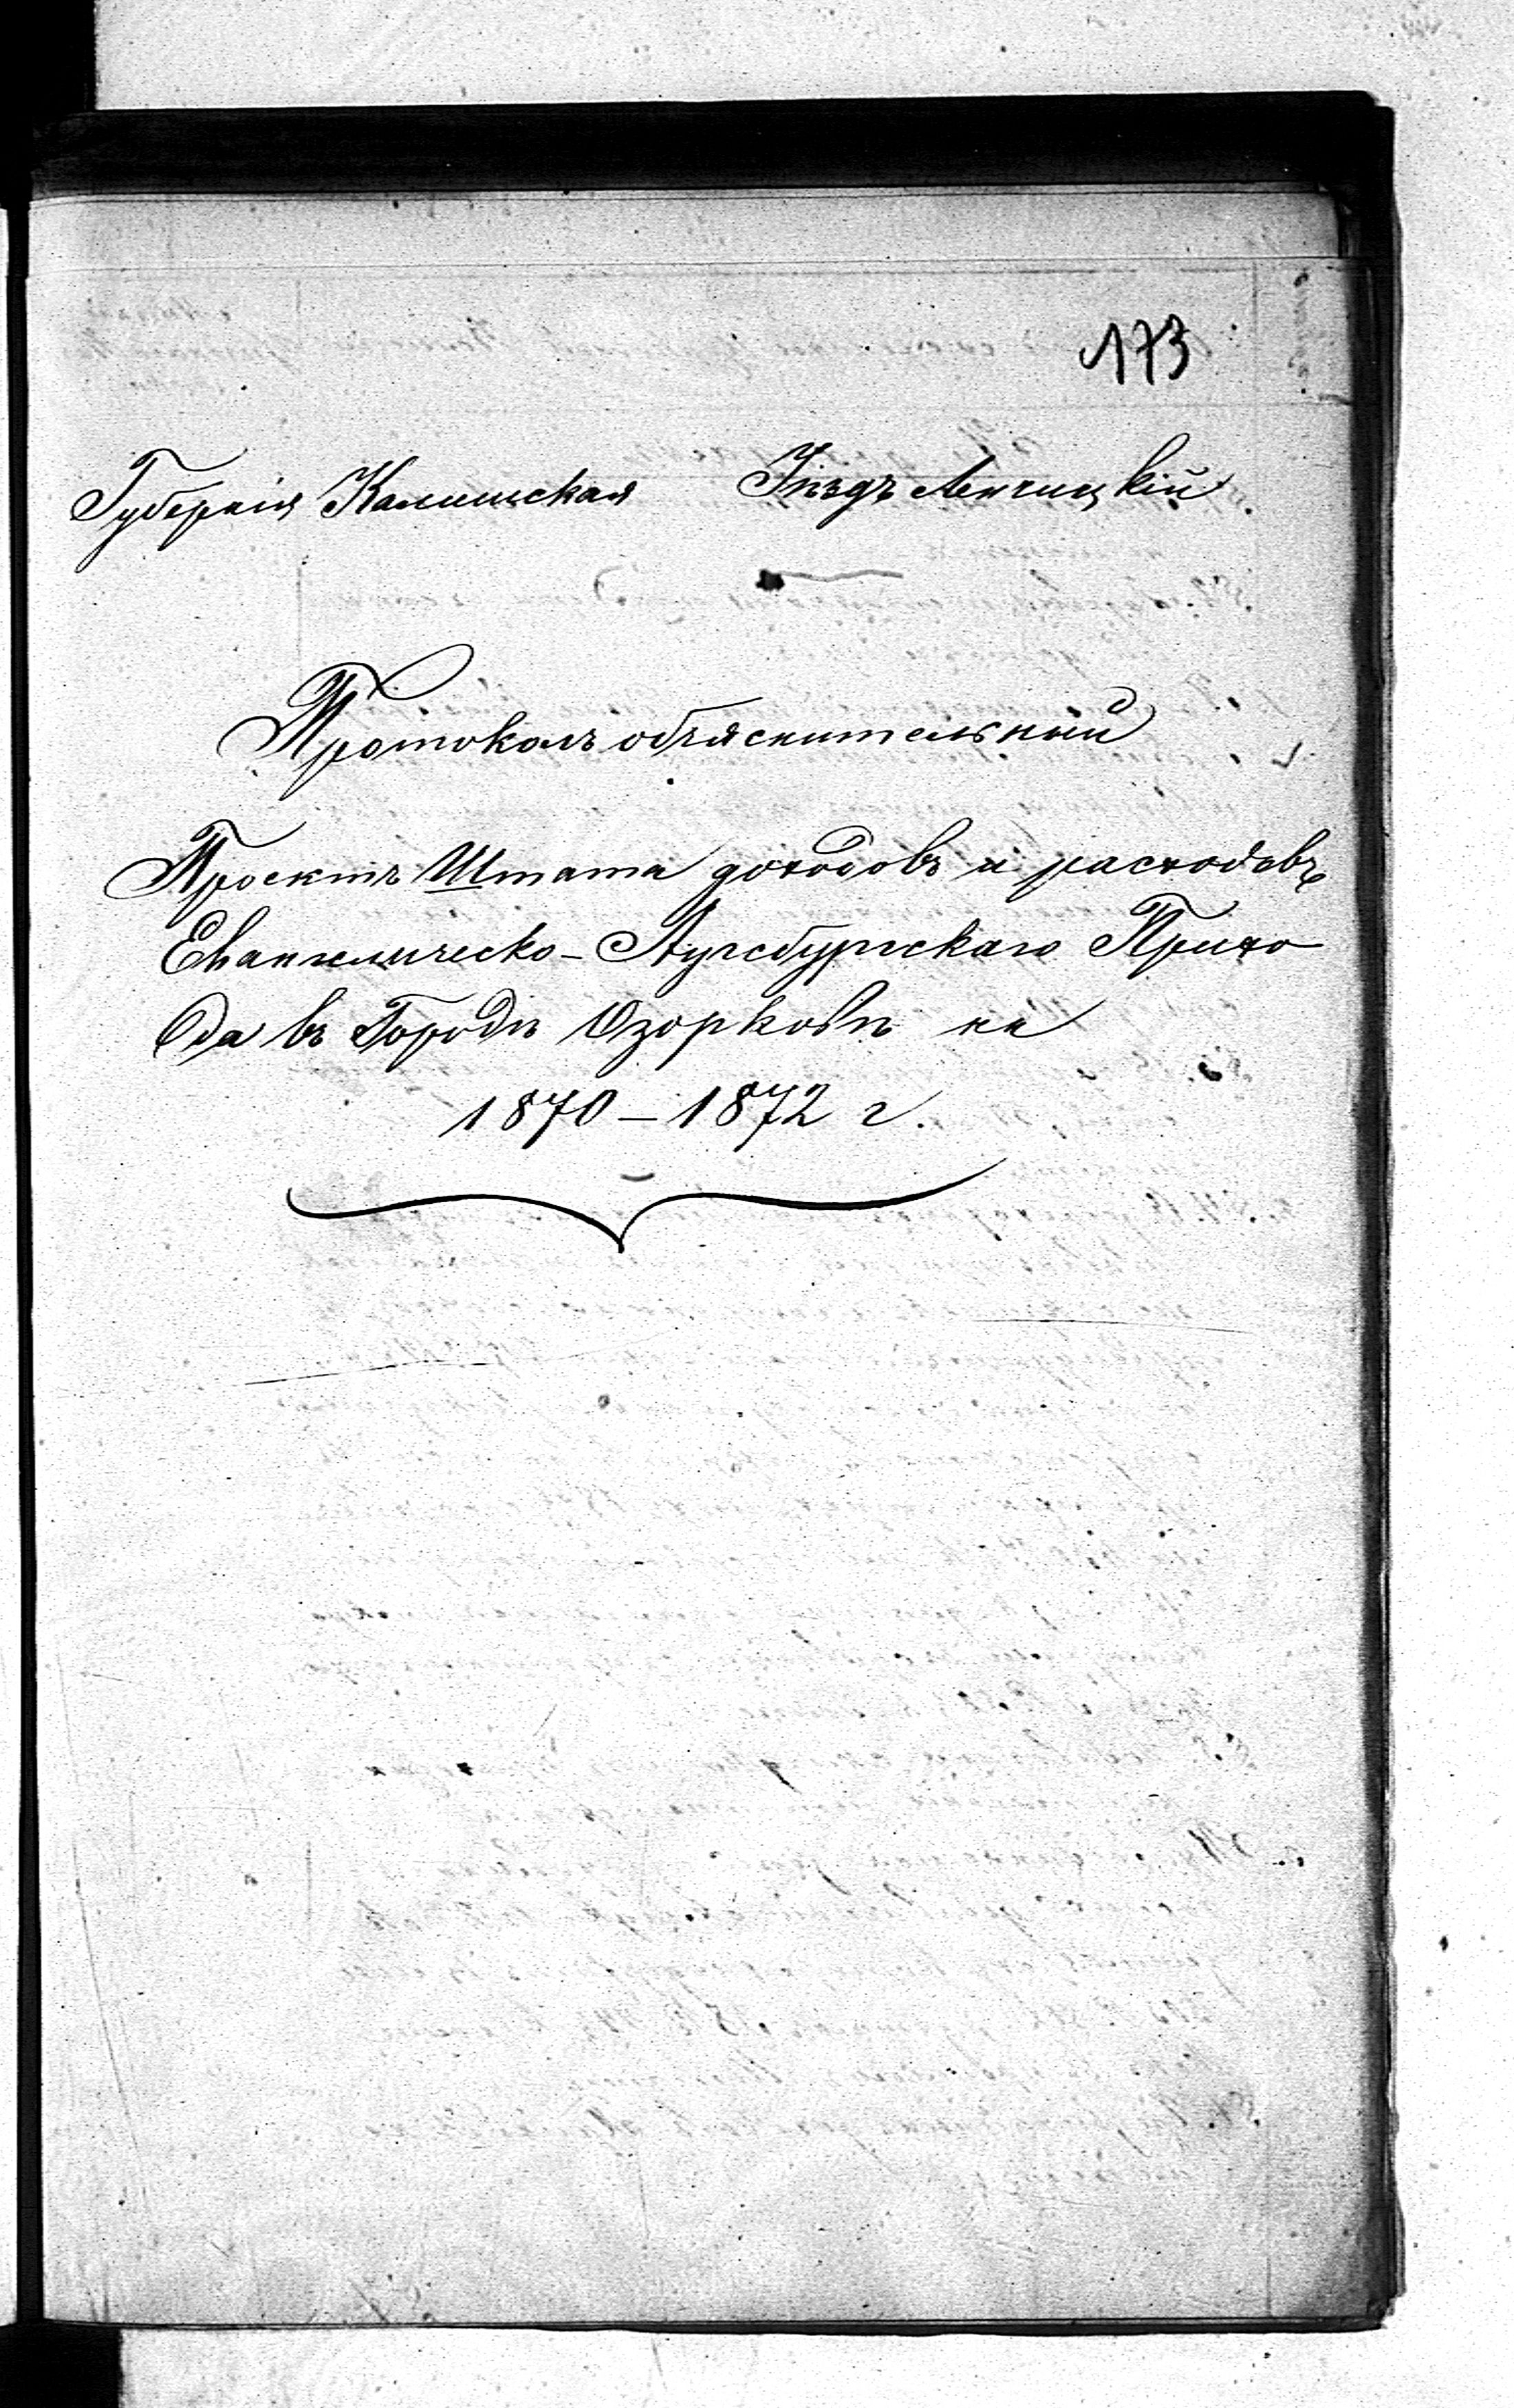 173
Губернія Калишская Уѣздъ Ленчицкій
Протоколъ объяснительный
Проектъ Штата доходовъ и расходовъ
Евангелическо-Аугсбургскаго Прихо
да въ Городѣ Озорковѣ на
1870–1872 г.